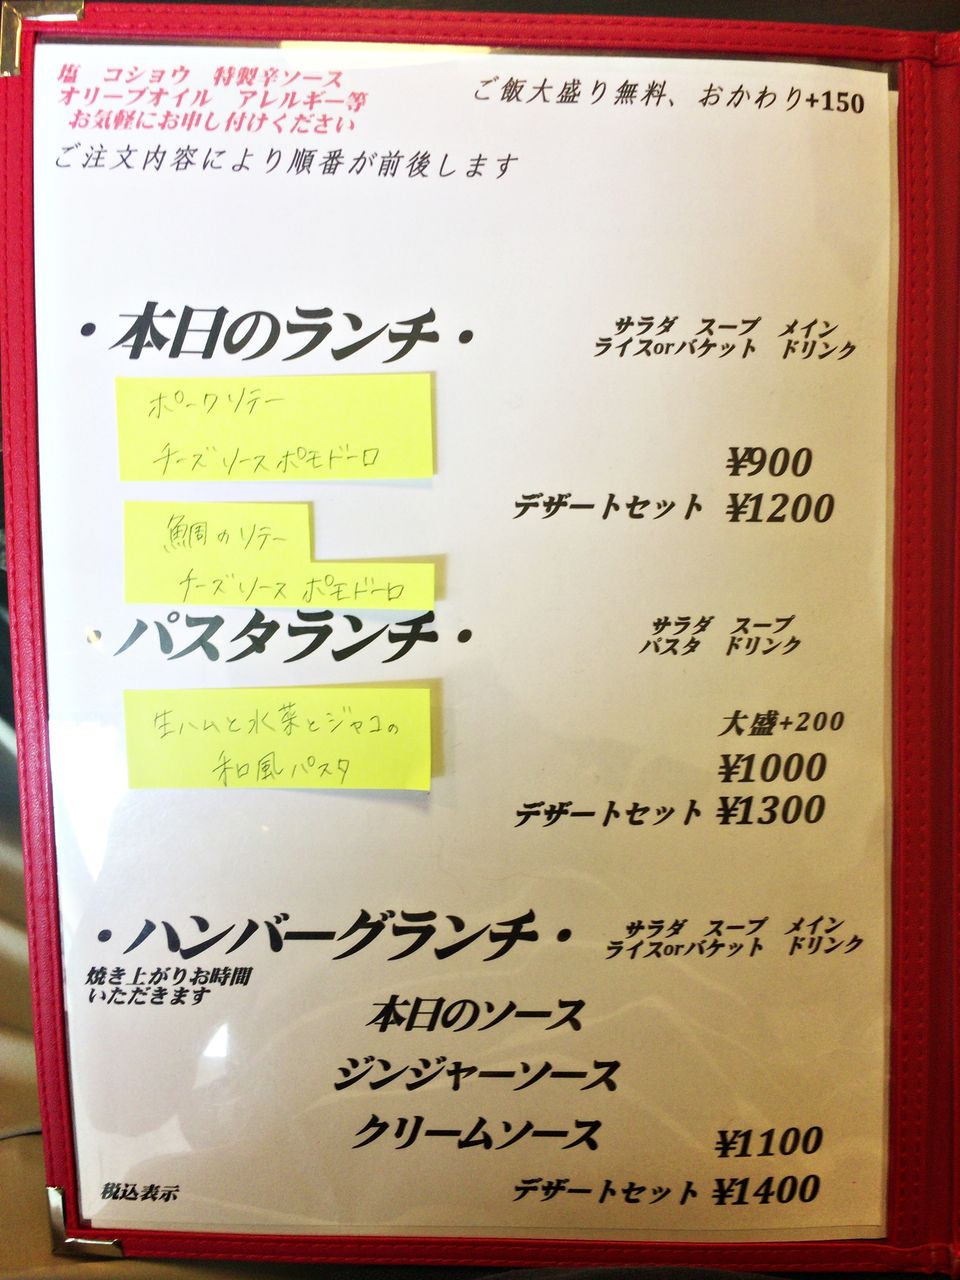 塩　コショウ　特製辛ソース
オリーブオイル　アレルギー等
お気軽にお申し付けください
ご飯大盛り無料、おかわり+150
ご注文内容により順番が前後します
・本日のランチ・
サラダ　スープ　メイン
ライスorバケット　ドリンク
ポークソテー
チーズソースポモドーロ
¥900
デザートセット ¥1200
鯛のソテー
チーズソース ポモドーロ
・パスタランチ・
サラダ　スープ
パスタ　ドリンク
生ハムと水菜とジャコの
和風パスタ
大盛+200
¥1000
デザートセット ¥1300
・ハンバーグランチ・
サラダ　スープ　メイン
ライスorバケット　ドリンク
焼き上がりお時間
いただきます
本日のソース
ジンジャーソース
クリームソース
¥1100
税込表示
デザートセット ¥1400